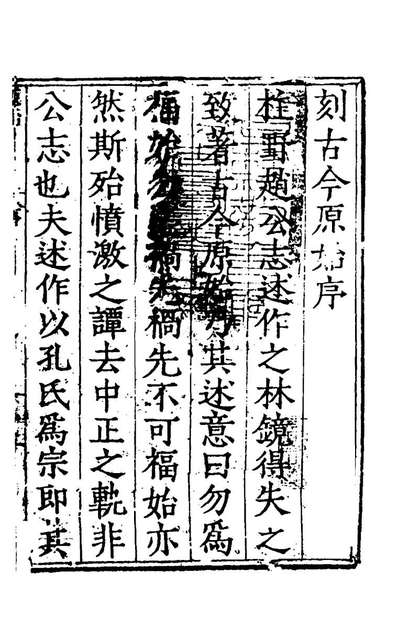 刻古今原始序
桂野趙公志述作之林鏡得失之
致著古今原始乃其述意曰勿爲
福始勿禍先禍先不可福始亦
然斯殆憤激之譚去中正之軌非
公志也夫述作以孔氏爲宗即其